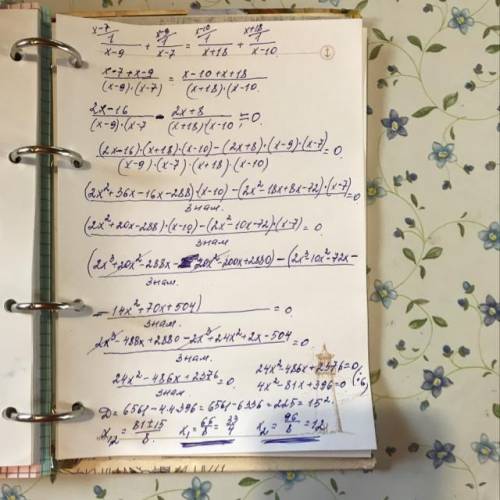 x-7 x-9 x-10 x+18
1/(x-9) + 1/(x-7) = 1/(x+18) + 1/(x-10)
(x-7+x-9)/((x-9)·(x-7)) = (x-10+x+18)/((x+18)·(x-10)
(2x-16)/((x-9)·(x-7) - (2x+8)/((x+18)(x-10 = 0.
((2x-16)·(x+18)·(x-10)-(2x+8)·(x-9)·(x-7))/((x-9)·(x-7)·(x+18)·(x-10)) = 0.
((2x²+36x-16x-288)(x-10)-(2x²-18x+8x-72)·(x-7))/знам. = 0
((2x²+20x-288)·(x-10)-(2x²-10x-72)·(x-7))/знам = 0
(2x³+20x²-288x-20x²-200x+2880)-(2x³-10x²-72x-
знам.
-14x²+70x+504)/знам. = 0.
(2x³-488x+2880-2x³+24x²+2x-504)/знам. = 0
(24x²-486x+2376)/знам. = 0. 24x²-486x+2376=0 (:6)
4x²-81x+396=0
D=6561-4·4·396=6561-6336=225=15².
x₁,₂=(81±15)/8. x₁=66/8=33/4 x₂=96/8=12.